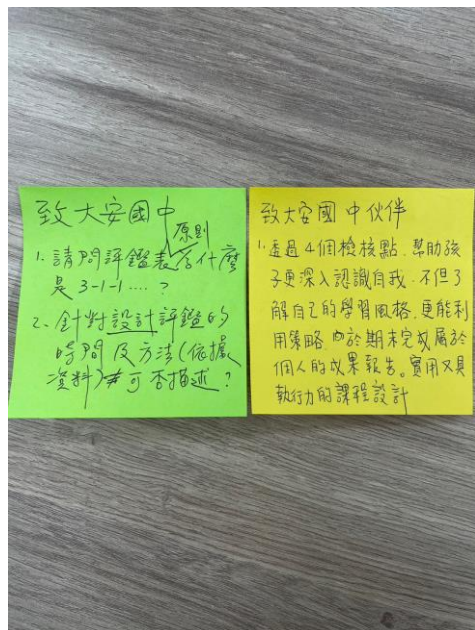 致大安國中
原則
1. 請問評鑑表為什麼
是 3-1-1 ....?
2. 針對設計評鑑的
時間及方法(依據
資料)可否描述?
致大安國中伙伴
1. 透過4個檢核點,幫助孩
子更深入認識自我.不但了
解自己的學習風格,更能利
用策略,於期末完成屬於
個人的成果報告。實用又具
執行力的課程設計